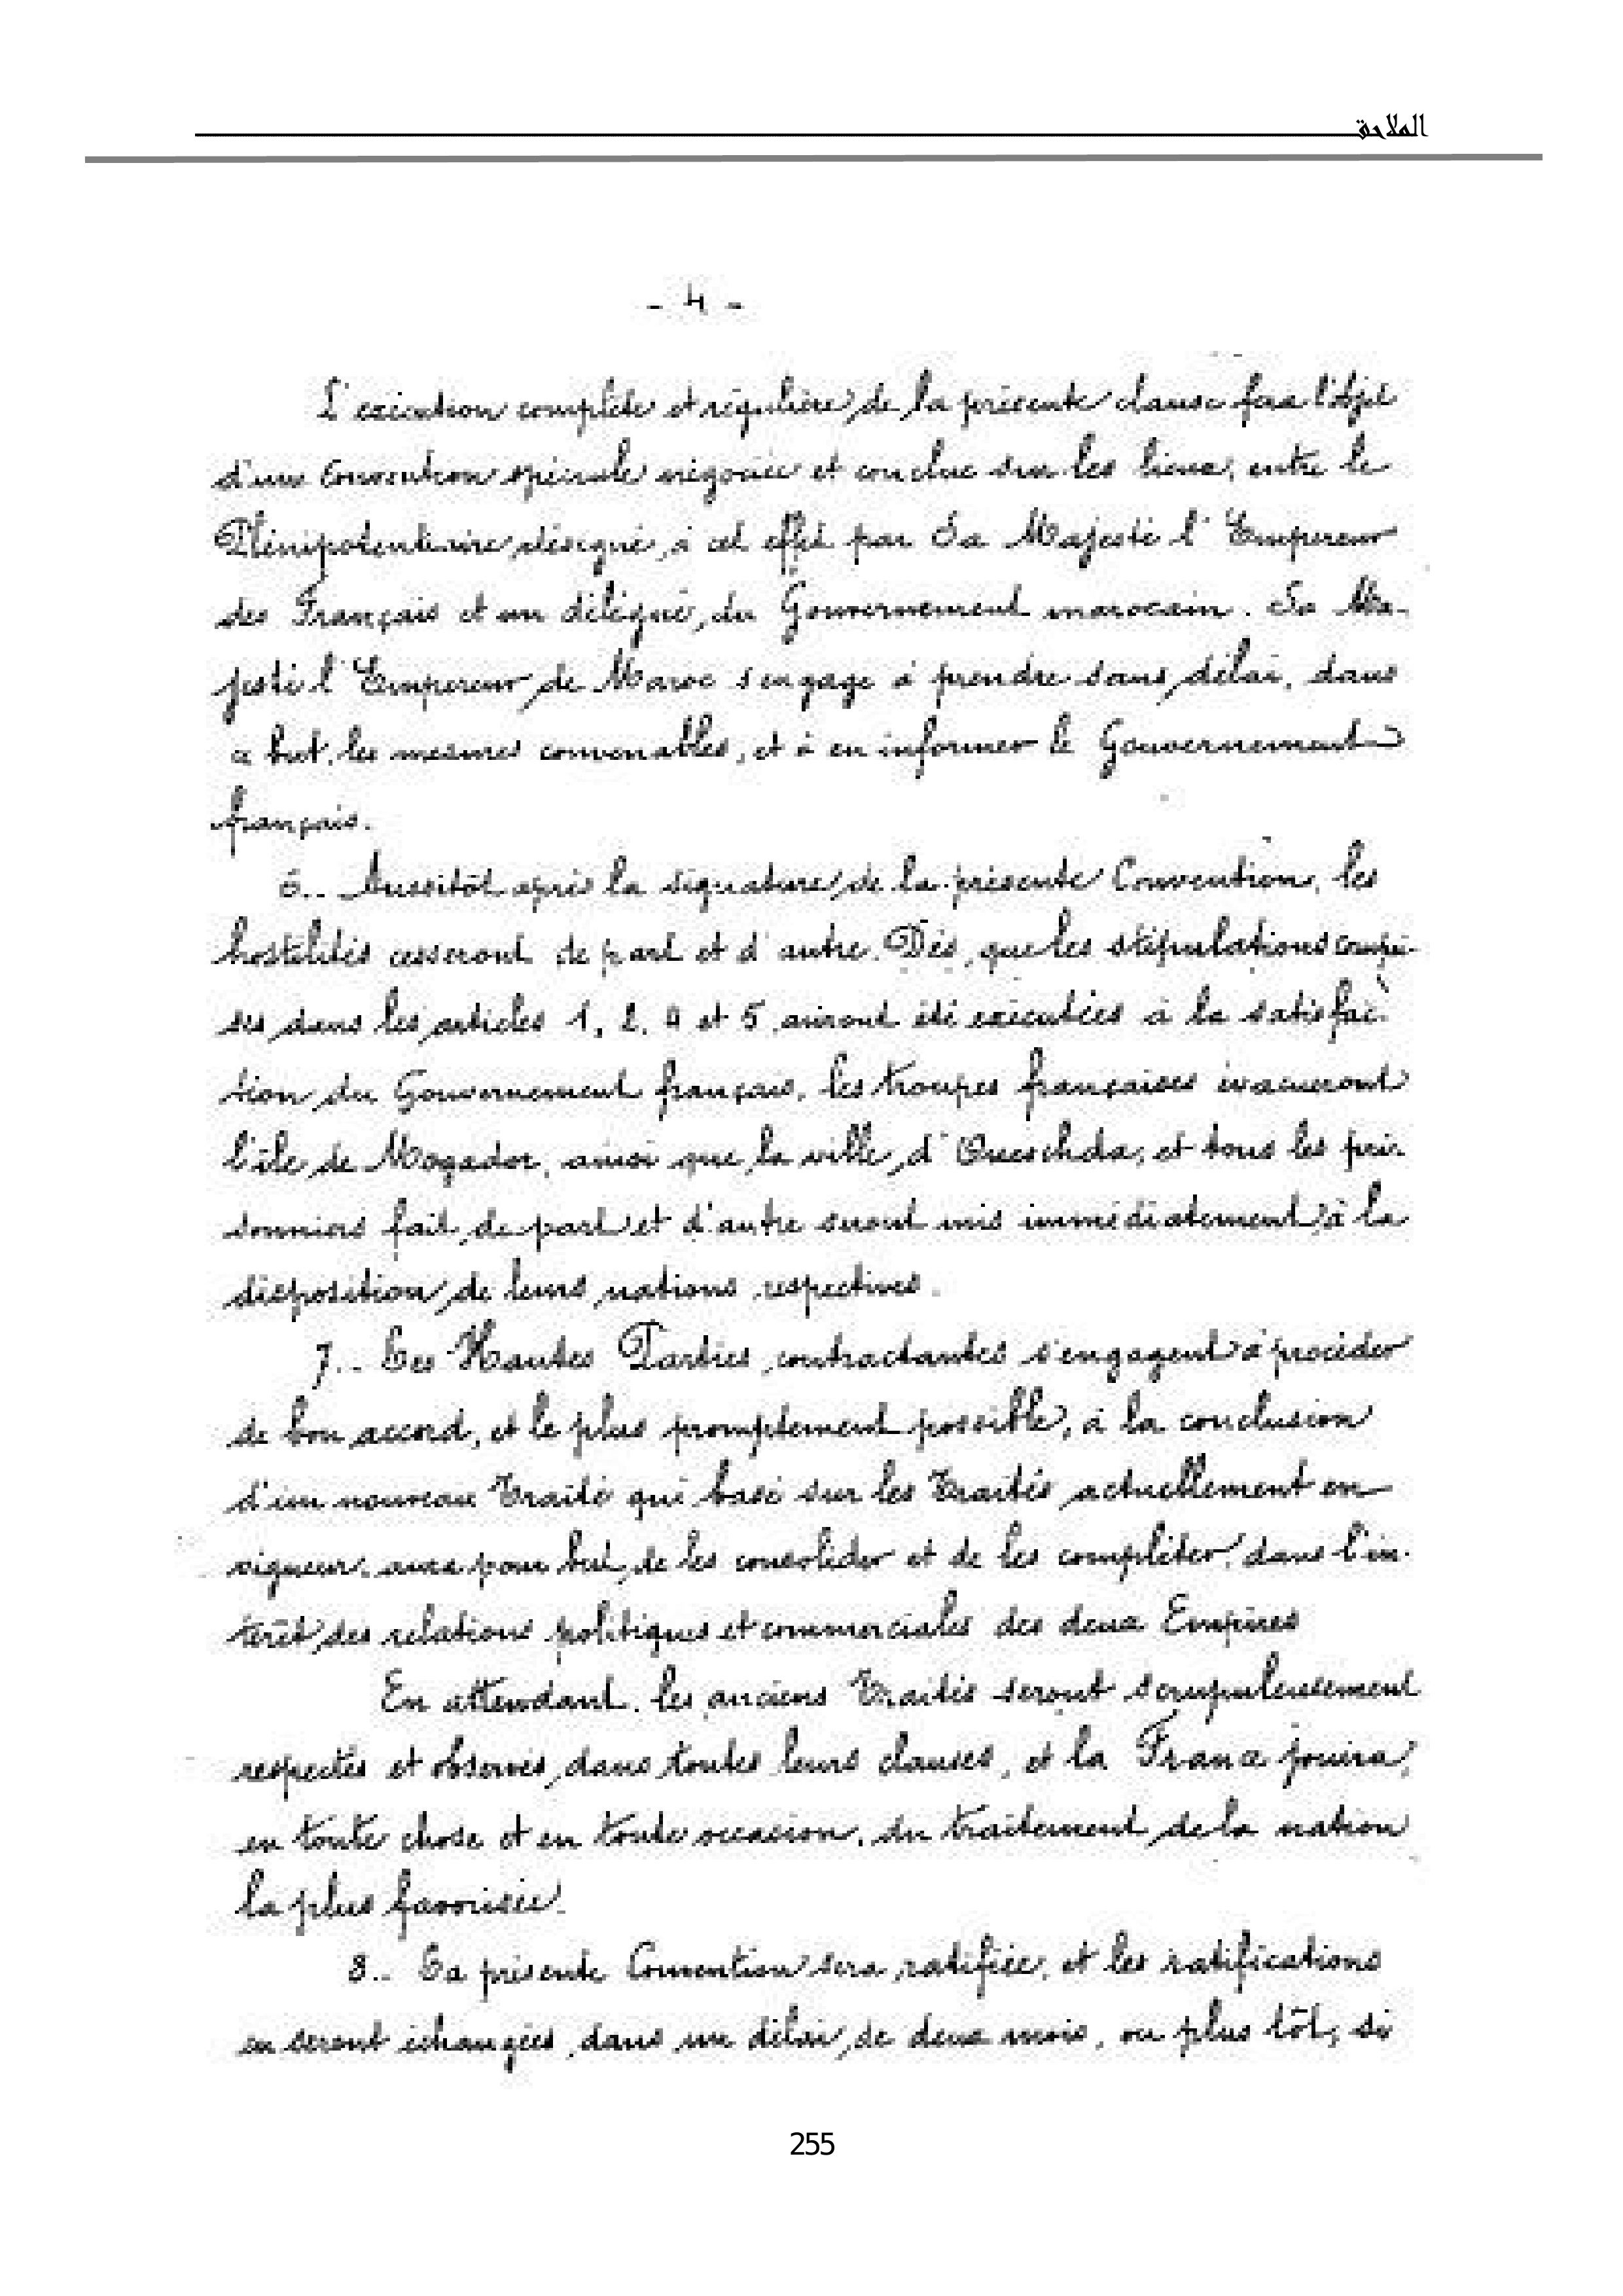 الملاحق
- 4 -
L'exécution complète et régulière de la présente clause fera l'objet
d'une Convention spéciale négociée et conclue sur les lieux, entre le
Plénipotentiaire désigné à cet effet par Sa Majesté l'Empereur
des Français et un délégué du Gouvernement marocain. Sa Ma-
jesté l'Empereur de Maroc s'engage à prendre sans délai, dans
ce but, les mesures convenables, et à en informer le Gouvernement
français.
6.. Aussitôt après la signature de la présente Convention, les
hostilités cesseront de part et d'autre. Dès que les stipulations compri-
ses dans les articles 1, 2, 4 et 5 auront été exécutées à la satisfac-
tion du Gouvernement français, les troupes françaises évacueront
l'île de Mogador, ainsi que la ville d'Oueschda, et tous les pri-
sonniers fait de part et d'autre seront mis immédiatement à la
disposition de leurs nations respectives.
7.. Les Hautes Parties contractantes s'engagent à procéder
de bon accord, et le plus promptement possible, à la conclusion
d'un nouveau Traité qui basé sur les Traités actuellement en
vigueur, aura pour but de les consolider et de les compléter, dans l'in-
térêt des relations politiques et commerciales des deux Empires
En attendant, les anciens Traités seront scrupuleusement
respectés et observés dans toutes leurs clauses, et la France jouira,
en toute chose et en toute occasion, du traitement de la nation
la plus favorisée.
8.. La présente Convention sera ratifiée, et les ratifications
en seront échangées dans un délai de deux mois, ou plus tôt, si
255